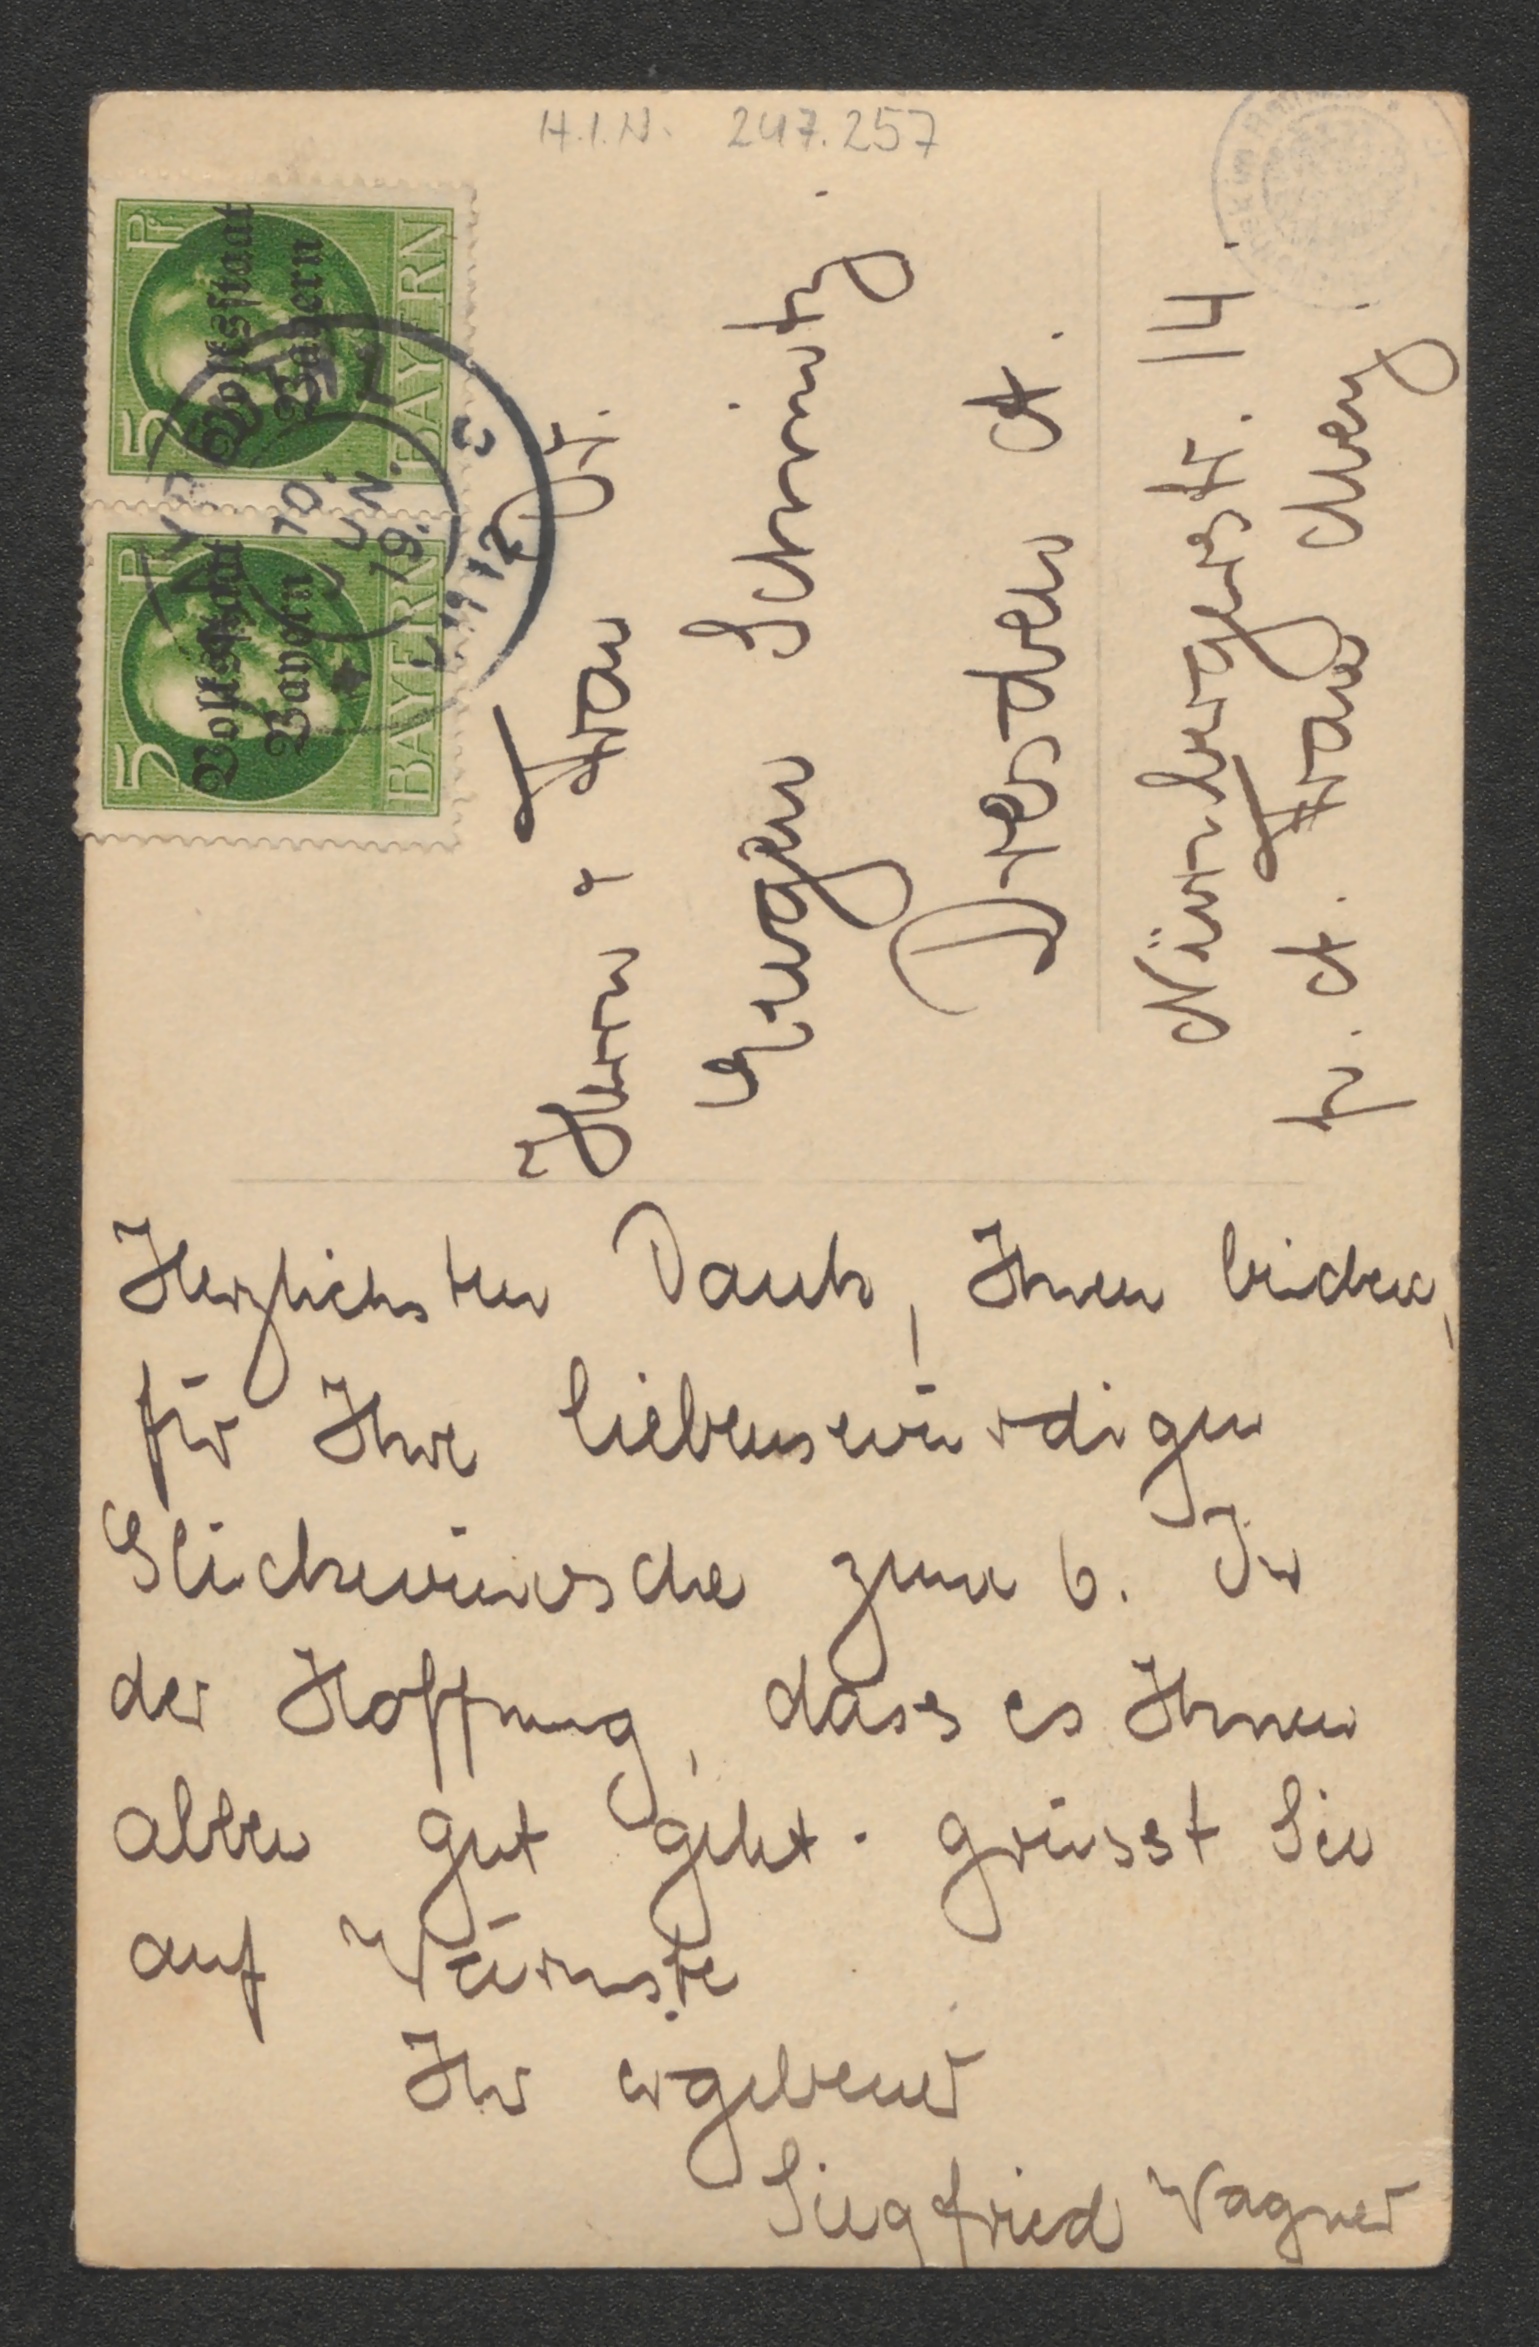 H.I.N. 247.257
5 Pf
Volksstaat
Bayern
BAYERN
5 Pf
Volksstaat
Bayern
BAYERN
10.
JUN.
19.
Herrn & Frau Dr.
Eugen Schmitz.
Dresden A.
Nürnbergerstr. 14.
p. A. Frau Mey.
Herzlichsten Dank, Ihnen beiden,
für Ihre liebenswürdigen
Glückwünsche zum 6. In
der Hoffnung, dass es Ihnen
allen gut geht. grüsst Sie
auf Wärmste
Ihr ergebener
Siegfried Wagner